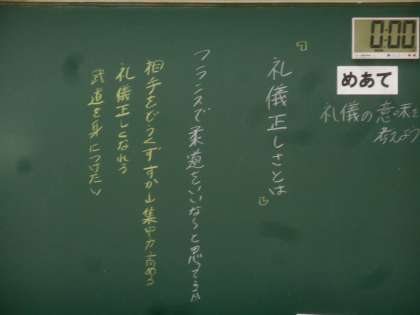 0:00
めあて
礼儀の意味を
考えよう
「礼儀正しさとは」
フランスで柔道をいいなあと思ってる人
相手をどうくずすか 集中力高める
礼儀正しくなれる
武道を身につけたい